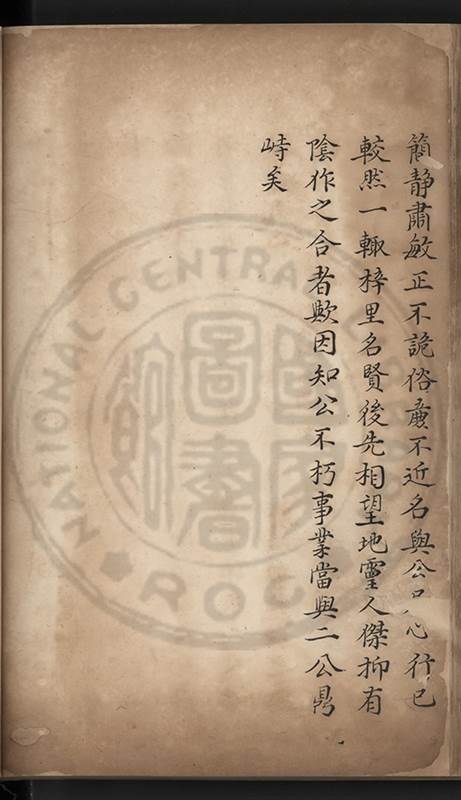 簡静肅敏正不詭俗廉不近名與公心行已
較然一轍梓里名賢後先相望地靈人傑抑有
陰作之合者歟因知公不朽事業當與二公鼎
峙矣
NATIONAL CENTRAL
ROC
國家
圖書